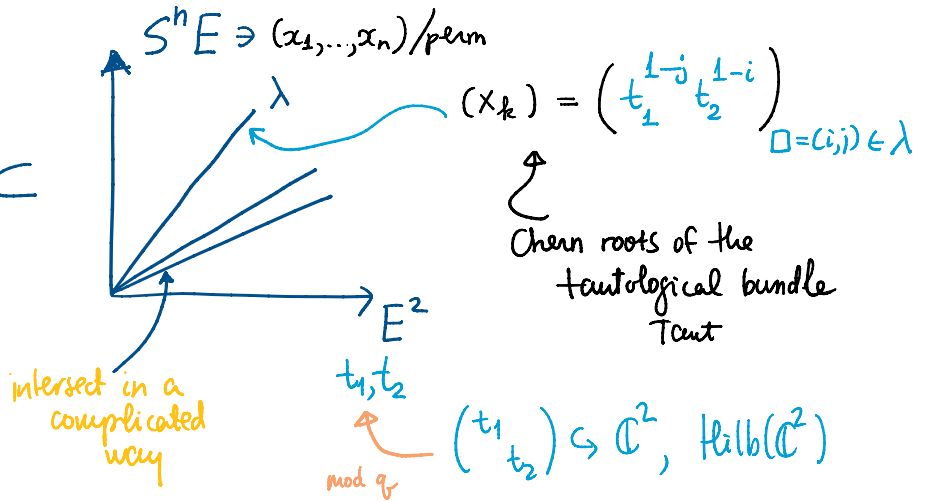 SⁿE ∋ (x₁,...,xₙ)/perm
λ
(xₖ) = (t₁^{1-j} t₂^{1-i})_{□=(i,j) ∈ λ}
⊂
Chern roots of the
tautological bundle
Taut
E²
intersect in a
complicated
way
t₁,t₂
mod q
(t₁ t₂) ↪ ℂ², Hilb(ℂ²)